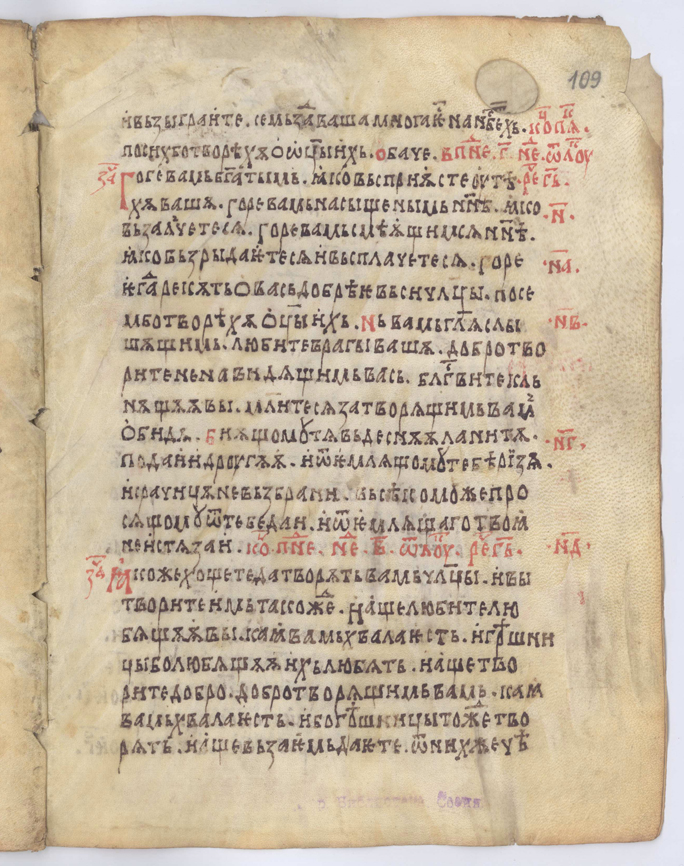 109
ивьзыграите · се мьзда ваша многа ѥ на нб҃ехь · коц пѧ ·
по сихь бо творѣхѫ ѡц҃ы ихь · обаче · в пⷩ҇е · г҃ · нⷣ҇е · ѿ лоу
Горе вамь бг҃атымь · ꙗко вьсприѧсте оутѣ · рⷱ҇е гⷭ҇ь ·
хѫ вашѫ · горе вамь насыщенымь нн҃ѣ · ꙗко · н҃ ·
вьзалчете сѧ · горе вамь смѣѫщим сѧ нн҃ѣ ·
ꙗко вьзрыдаѥте сѧ и вьсплачете сѧ · горе · н҃а ·
ѥгⷣа рекѫть о вась добрѣ вьси чл҃ци · по се
мь бо творѣхѫ ѡц҃ы ихь · Нь вамь гл҃ѭ слы · н҃в ·
шѫщимь · любите врагы вашѫ · добро тво
рите ненавидѧщимь вась · блгⷭ҇вите кль
нѫщѫѫ вы · млите сѧ за творѧщимь вамь
обидѫ · биѭщомꙋ тѧ вь деснѫѫ ланитѫ · · н҃г ·
подаи и дрꙋгѫѫ · и ѿѥмлѭщомꙋ тебѣ ризѫ ·
и срачицѫ не вьзбрани · вьсѣкомꙋже про
сѧщомꙋ ꙋ тебе даи · и ѿѥмлѭщаго твоꙗ
не истѧзаи · коц пⷩ҇е · нⷣ҇е · в҃ · ѿ лоу · рⷱ҇е гⷭ҇ь · · н҃д ·
за Ꙗкоже хощете да творѧть вамь чл҃ци · и вы
творите имь такожⷣе · И аще любите лю
бѧщѫѫ вы · каꙗ вамь хвала ѥсть · и грѣшни
ци бо любѧщѫѫ ихь любѧть · и аще тво
рите добро · добро творѧщимь вамь · каꙗ
вамь хвала ѥсть · ибо грѣшници тожⷣе тво
рѧть · и аще вьзаимь даѥте · ѿ нихже чѣ